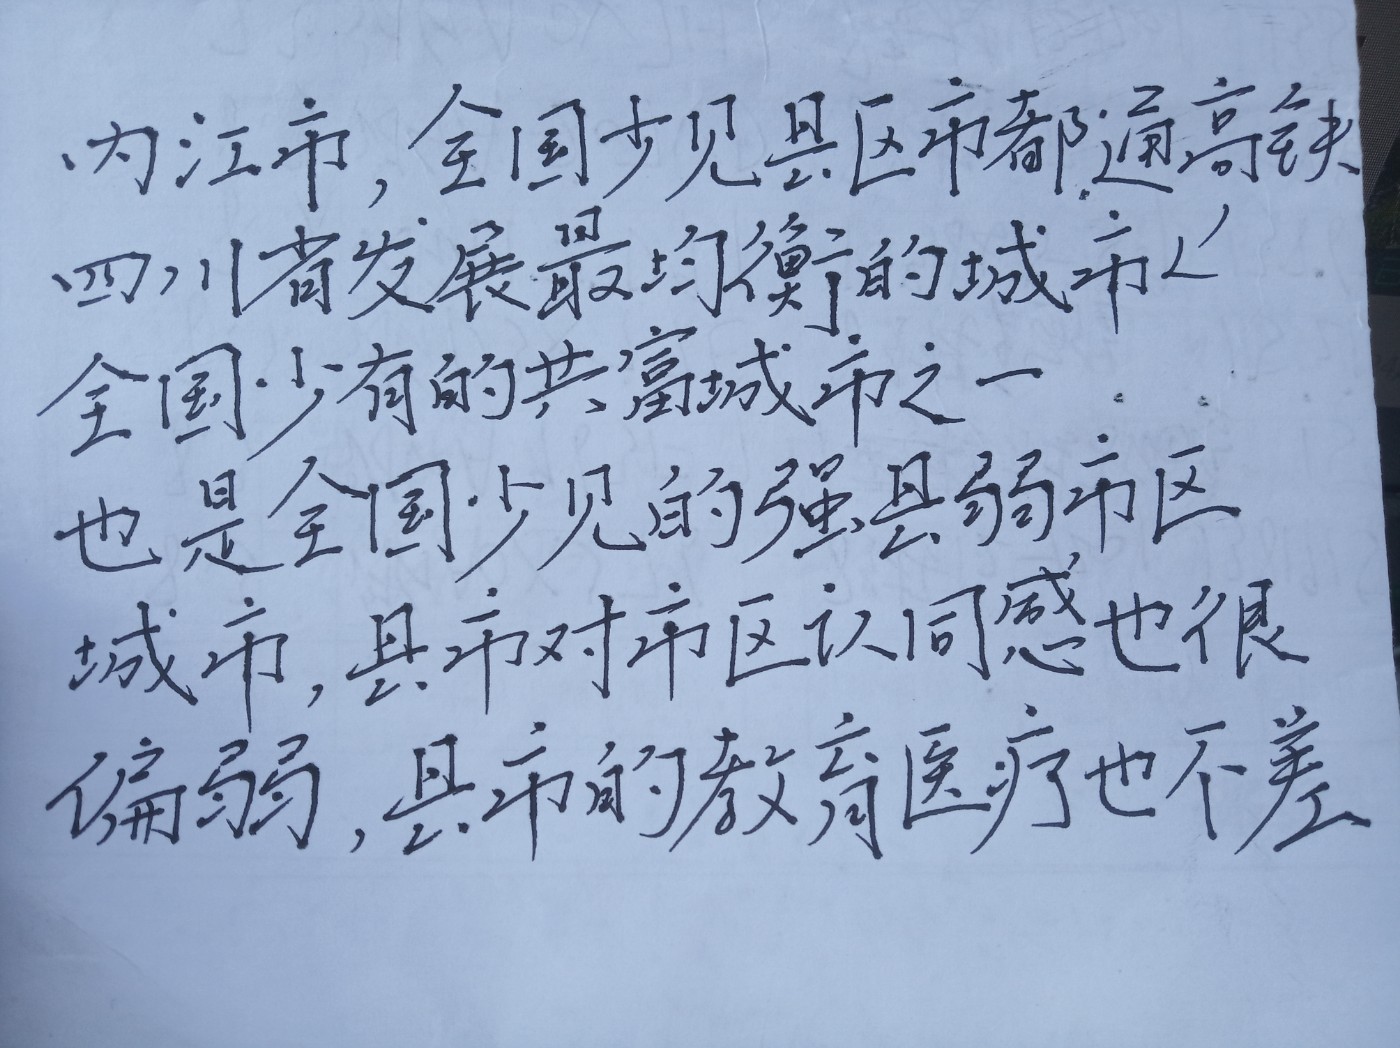 内江市，全国少见县区市都通高铁
四川省发展最均衡的城市
全国少有的共富城市之一
也是全国少见的强县弱市区
城市，县市对市区认同感也很
偏弱，县市的教育医疗也不差